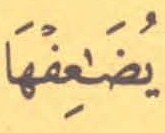 يُضَٰعِفْهَا